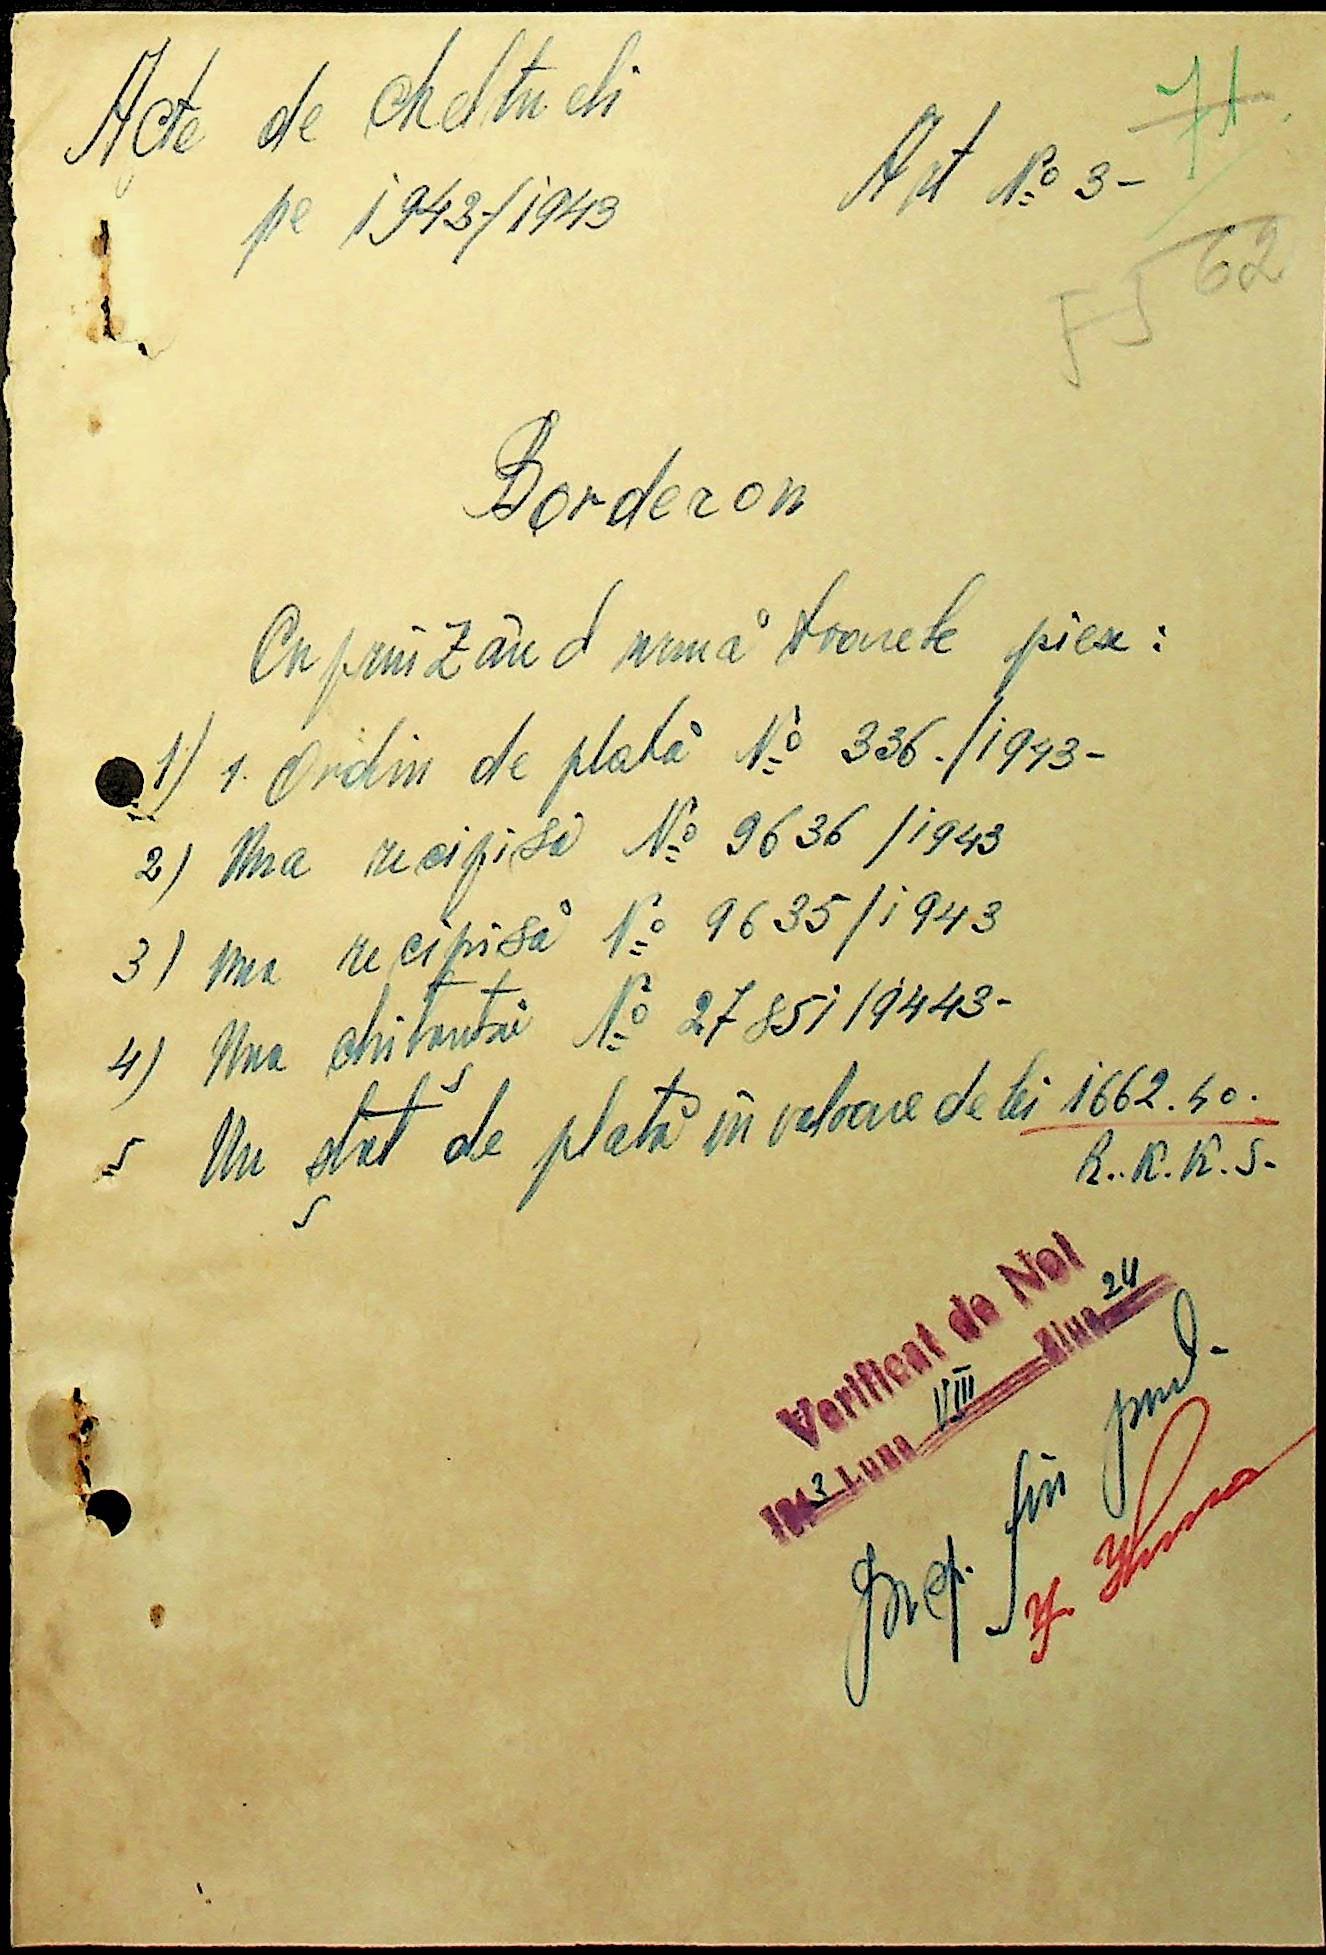 Acte de cheltueli
pe 1943/1943
Art No 3-
71
62
Borderou
Cuprinzând următoarele piese:
1) 1. Ordin de plată No 336./1943-
2) Una recipisă No 9636/1943
3) una recipisă No 9635/1943
4) Una chitanță No 27851/9443-
5 Un ștat de plată în valoare de lei 1662.50.
R..K.K.S-
Verificat de Noi
1943 Luna VIII Ziua 24
Insp. fin